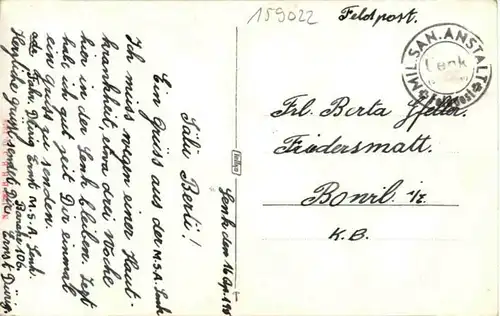 159022
Feldpost.
MIL. SAN. ANSTALT
Lenk
Lenk den 16 Apr. 19
Sälü Berti!
Ein Gruss aus der M.S.A. Lenk
Ich muss wegen einer Haut-
krankheit, etwa drei Woche
hier in der Lenk bleiben. Jezt
hab ich gut zeit Dir einmal
ein gruss zu senden.
Adr. Fahr. Dürig Ernst M.S.A. Lenk.
Barake 106.
Herzliche grüsse sendet Dir Ernst Dürig.
Frl. Berta Gfeller.
Friedersmatt.
Bowil i/E.
K.B.